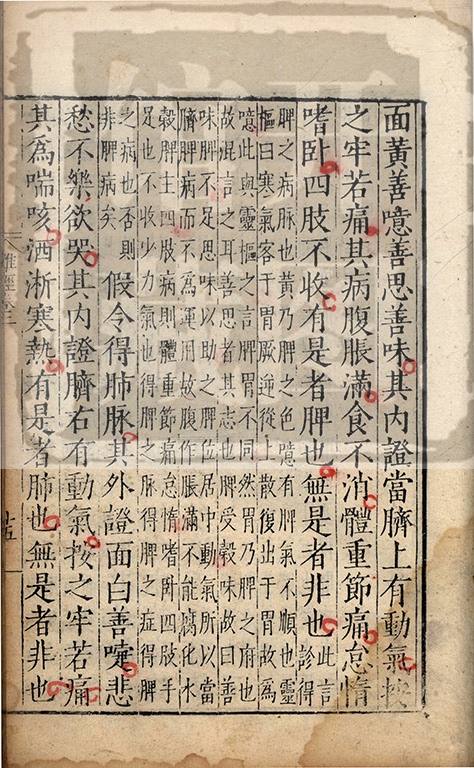 面黃善噫善思善味其內證當臍上有動氣按
之牢若痛其病腹脹滿食不消體重節痛怠惰
嗜卧四肢不收有是者脾也無是者非也此言診得
脾之病脉也黃乃脾之色噫有脾氣不順也靈
樞曰寒氣客于胃厥逆從上散復出于胃故爲
噫此與靈樞之言脾胃不同然胃乃脾之府也
故混言之耳善思者其志也脾受穀味故曰善
味脾不足思味以助之脾位居中動氣所以當
臍脾病而不爲運用故腹作脹滿不能腐化水
穀脾主四肢病則體重節痛怠惰嗜卧四肢手
足也不收少力氣也得脾之脉得脾之症得脾
之病也否則
非脾病矣
假令得肺脉其外證面白善嚏悲
愁不樂欲哭其內證臍右有動氣按之牢若痛
其為喘咳洒淅寒熱有是者肺也無是者非也
難經卷三
十五